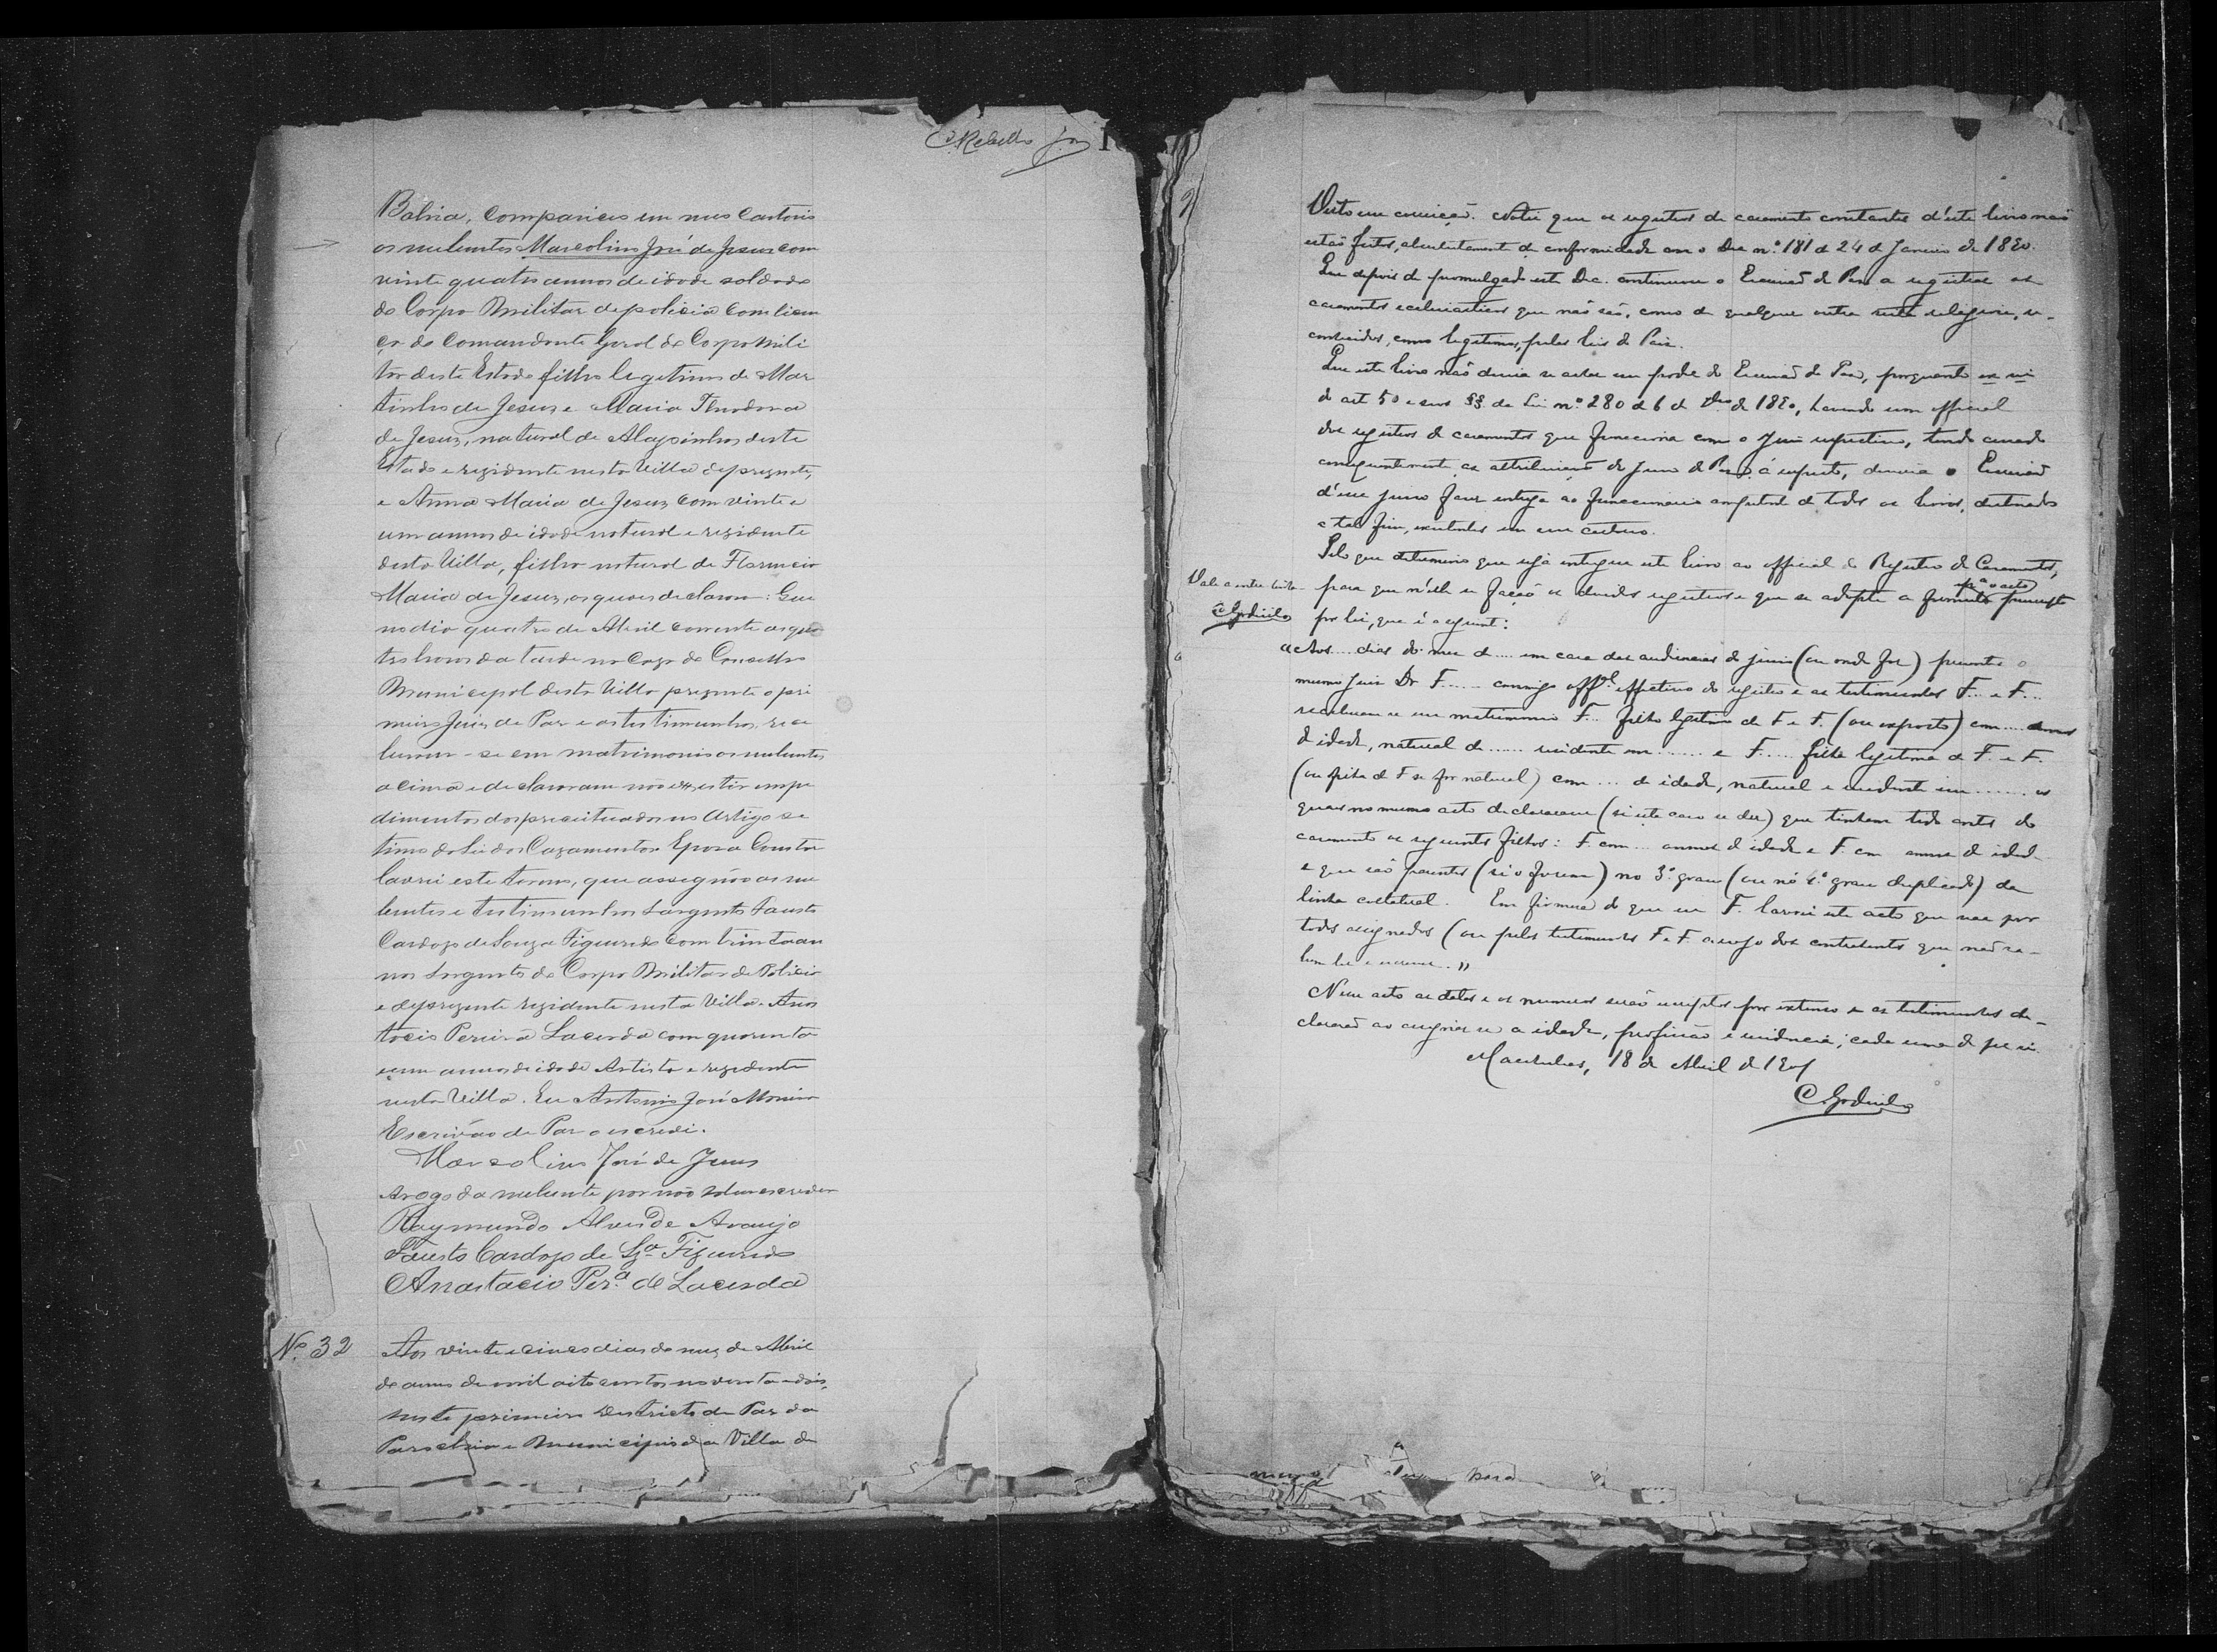 CRebello Jor
Bahia, compareceo em meo Cartorio
os nubentes Marcolino José de Jesus com
vinte quatro annos de idade soldado
do Corpo Militar de policia com licen
ça do Comandante Geral do Corpo Mili
tar deste Estado filho legitimo de Mar
tinho de Jesus e Maria Theodora
de Jesus, natural de Alagoinhas deste
Estado e rezidente nesta Villa de prezente,
e Anna Maria de Jesus com vinte e
um annos de idade natural e rezidente
desta Villa, filha natural de
Maria de Jesus, os quaes declarou: Que
no dia quatro de Abril corrente as qua
tro horas da tarde no Caza do Conselho
Municipal desta Villa prezente o pri
meiro Juiz de Paz e as testimunhas, rece
beram-se em matrimonio os nubentes
acima e declararam não existir impe
dimentos dos preceituados no Artigo se
timo da Lei dos Cazamentos E para Constar
lavrei este termo, que assignão os nu
bentes e testimunhas Sargento Fausto
Cardozo de Souza Figueredo com trinta an
nos Sargento do Corpo Militar de Policia
e de prezente rezidente nesta Villa. Anas
tacio Pereira Lacerda com quarenta
e um annos de idade Artista e rezidente
nesta Villa. Eu Antonio José Moreira
Escrivão de Paz o escrevi.
Marcolino José de Jesus
Arogo da nubente por não saber escrever
Raymundo Alves de Araujo
Fausto Cardozo de Sza Figueredo
Anastacio Perª de Lacerda
Nº 32
Aos vinte e cinco dias do mez de Abril
do anno de mil oito centos noventa e dois,
neste primeiro Districto de Paz da
Parochia e Municipio da Villa de
Visto em correição. Notei que os registros de casamento constantes d'este livro não
estão feitos, absolutamente de conformidade com o Dec nº 181 de 24 de Janeiro de 1890.
Que depois de promulgado este Dec. continuou o Escrivão de Paz a registrar os
casamentos ecclesiasticos que não são, como de qualquer outra seita religiosa, re-
conhecidos, como legitimos, pelas leis do Paiz.
Que este livro não devia se achar em poder do Escrivão de Paz, porquanto ex vi
do art 50 e seus §§. da Lei nº 280 de 6 de de 1890, havendo um official
dos registros de casamentos que funcciona com o Juiz respectivo, tendo cessado
consequentemente as attribuições do Juizo de Paz á respeito, deveria o Escrivão
d'esse juizo fazer entrega ao funccionario competente de todos os livros, destinados
a tal fim, existentes em seu cartorio.
Pelo que determino que seja entregue este livro ao official do Registro de Casamentos,
para que n'elle se fação os devidos registros e que se adopte a formula
por lei, que é a seguinte:
Vale a entre linha
CGodinho
pª o acto
Aos.... dias do mez de.... em casa das audiencias do juizo (ou onde for) presente o
mesmo Juiz Dr F...... commigo offal effectivo do registro e as testimunhas F... e F...
receberam-se em matrimonio F... filho legitimo de F. e F. (ou exposto) com.... annos
de idade, natural de...... residente em....... e F..... filha legitima de F. e F.
(ou filha de F se for natural) com.... de idade, natural e residente em....... os
quaes no mesmo acto declararam (si este caso se der) que tinham tido antes do
casamento os seguintes filhos: F. com... annos de idade e F. com annos de idade
e que são parentes (si o forem) no 3º. grau (ou no 2º grau duplicado) da
linha collateral. Em firmeza do que eu F. lavrei este acto que vae por
todos assignados (ou pelas testimunhas F e F. a rogo dos contrahentes que não sa-
bem ler e escrever."
N'esse acto as datas e os numeros serão escriptos por extenso e as testimunhas de-
clararão ao assignar-se a idade, profissão e residencia; cada uma de per si.
Macahubas, 18 de Abril de 1901
CGodinho